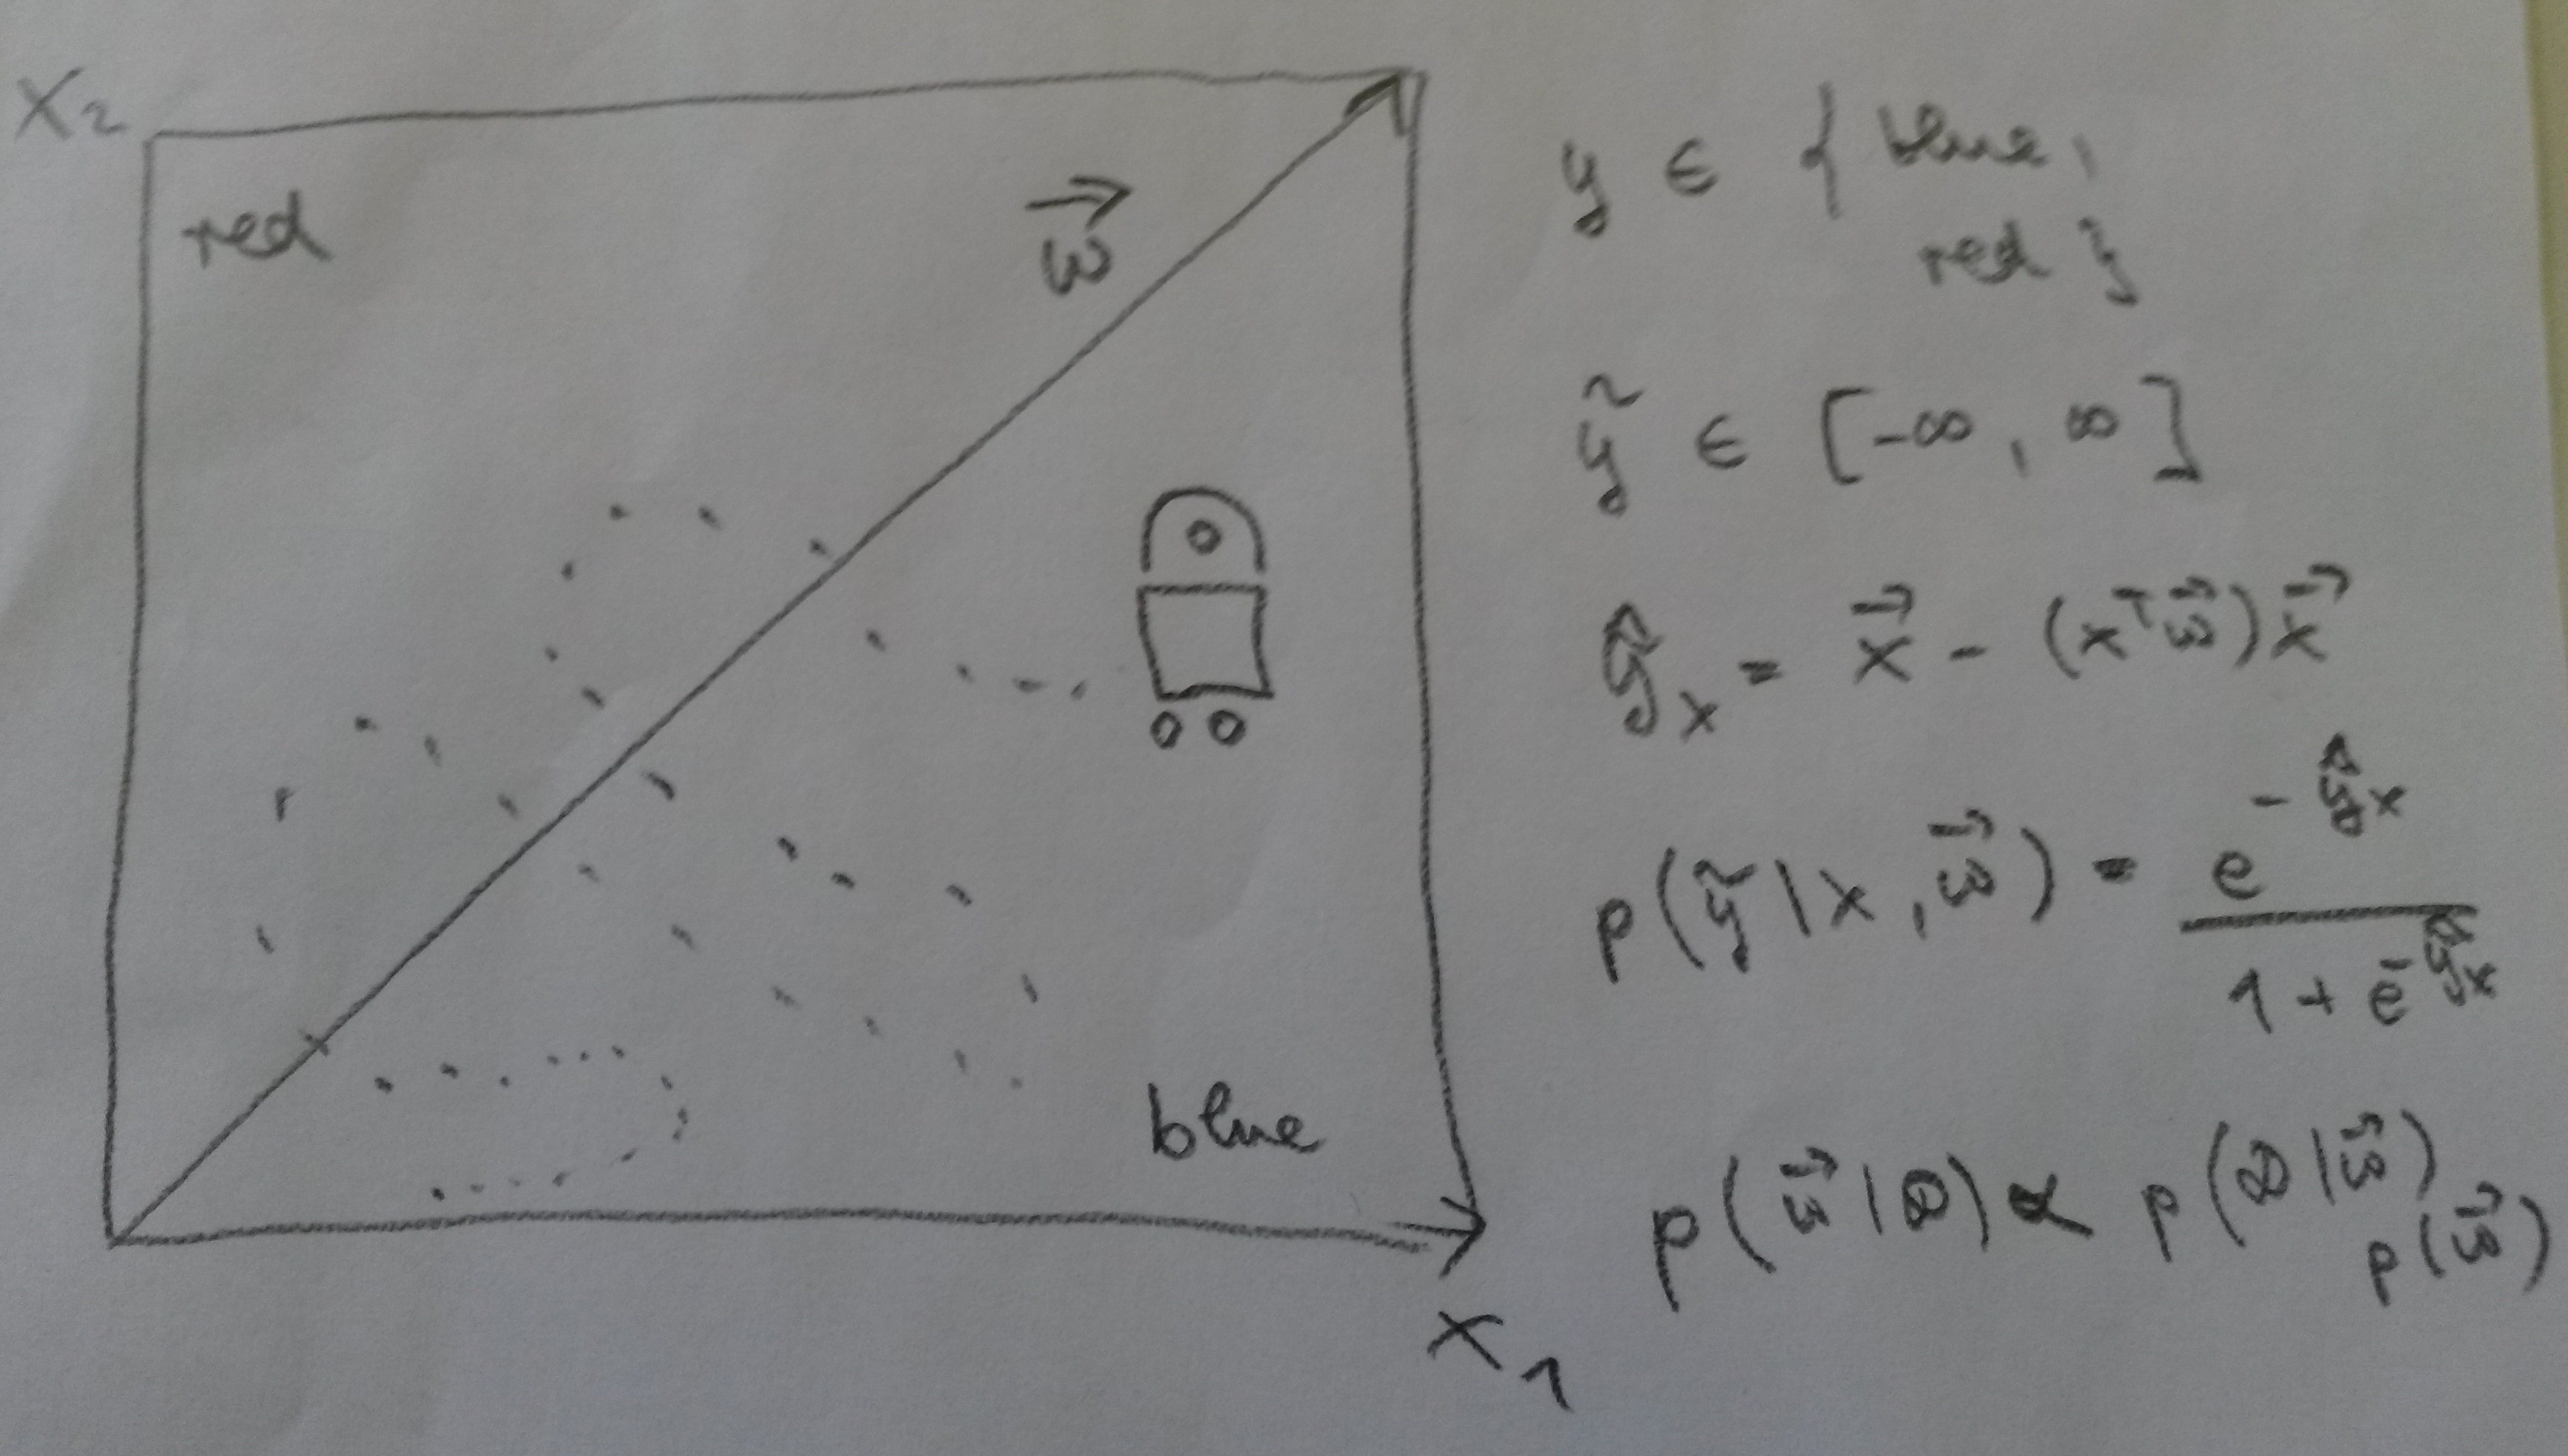 X₂
red
w⃗
blue
X₁
y ∈ { blue,
red }
ỹ ∈ [-∞, ∞]
ŷₓ = x⃗ - (xᵀw⃗)x⃗
p(ỹ|x, w⃗) = e^(-ŷₓ) / (1 + e^(-ŷₓ))
p(w⃗|D) ∝ p(D|w⃗)
p(w⃗)